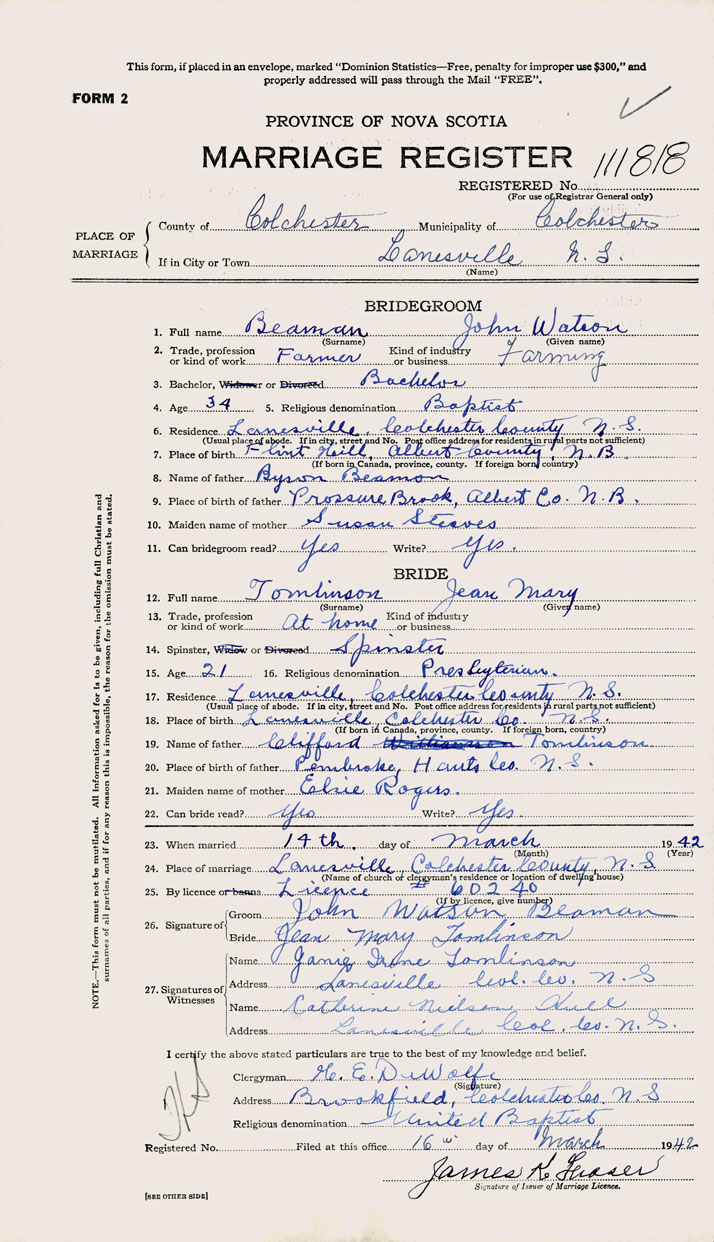 This form, if placed in an envelope, marked "Dominion Statistics—Free, penalty for improper use $300," and
properly addressed will pass through the Mail "FREE".
FORM 2
PROVINCE OF NOVA SCOTIA
MARRIAGE REGISTER
111818
REGISTERED No.
(For use of Registrar General only)
PLACE OF MARRIAGE
County of Colchester Municipality of Colchester
If in City or Town Lanesville N.S.
(Name)
BRIDEGROOM
1. Full name Beaman John Watson
(Surname) (Given name)
2. Trade, profession or kind of work Farmer Kind of industry or business Farming
3. Bachelor, Widower or Divorced Bachelor
4. Age 34 5. Religious denomination Baptist
6. Residence Lanesville, Colchester County N.S.
(Usual place of abode. If in city, street and No. Post office address for residents in rural parts not sufficient)
7. Place of birth Flint Hill, Albert County, N.B.
(If born in Canada, province, county. If foreign born, country)
8. Name of father Byron Beamon
9. Place of birth of father Prossure Brook, Albert Co. N.B.
10. Maiden name of mother Susan Steeves
11. Can bridegroom read? Yes Write? Yes.
BRIDE
12. Full name Tomlinson Jean Mary
(Surname) (Given name)
13. Trade, profession or kind of work At home Kind of industry or business
14. Spinster, Widow or Divorced Spinster
15. Age 21 16. Religious denomination Presbyterian.
17. Residence Lanesville, Colchester County N.S.
(Usual place of abode. If in city, street and No. Post office address for residents in rural parts not sufficient)
18. Place of birth Lanesville, Colchester Co. N.S.
(If born in Canada, province, county. If foreign born, country)
19. Name of father Clifford Tomlinson
20. Place of birth of father Pembroke, Hants Co. N.S.
21. Maiden name of mother Elsie Rogers.
22. Can bride read? Yes Write? Yes.
23. When married 14th. day of March 1942
(Month) (Year)
24. Place of marriage Lanesville, Colchester County, N.S
(Name of church or clergyman's residence or location of dwelling house)
25. By licence or banns Licence # 60240
(If by licence, give number)
26. Signature of
Groom John Watson Beaman
Bride Jean Mary Tomlinson
27. Signatures of Witnesses
Name Janie Irene Tomlinson
Address Lanesville Col. Co. N.S
Name Catherine Nielson Hull
Address Lanesville Col. Co. N.S.
I certify the above stated particulars are true to the best of my knowledge and belief.
Clergyman H. E. DeWolfe
(Signature)
Address Brookfield, Colchester Co. N.S
Religious denomination United Baptist
Registered No. Filed at this office 16 day of March 1942
James K. Fraser
Signature of Issuer of Marriage Licence.
[SEE OTHER SIDE]
NOTE.—This form must not be mutilated. All information asked for is to be given, including full Christian and
surnames of all parties, and if for any reason this is impossible, the reason for the omission must be stated.